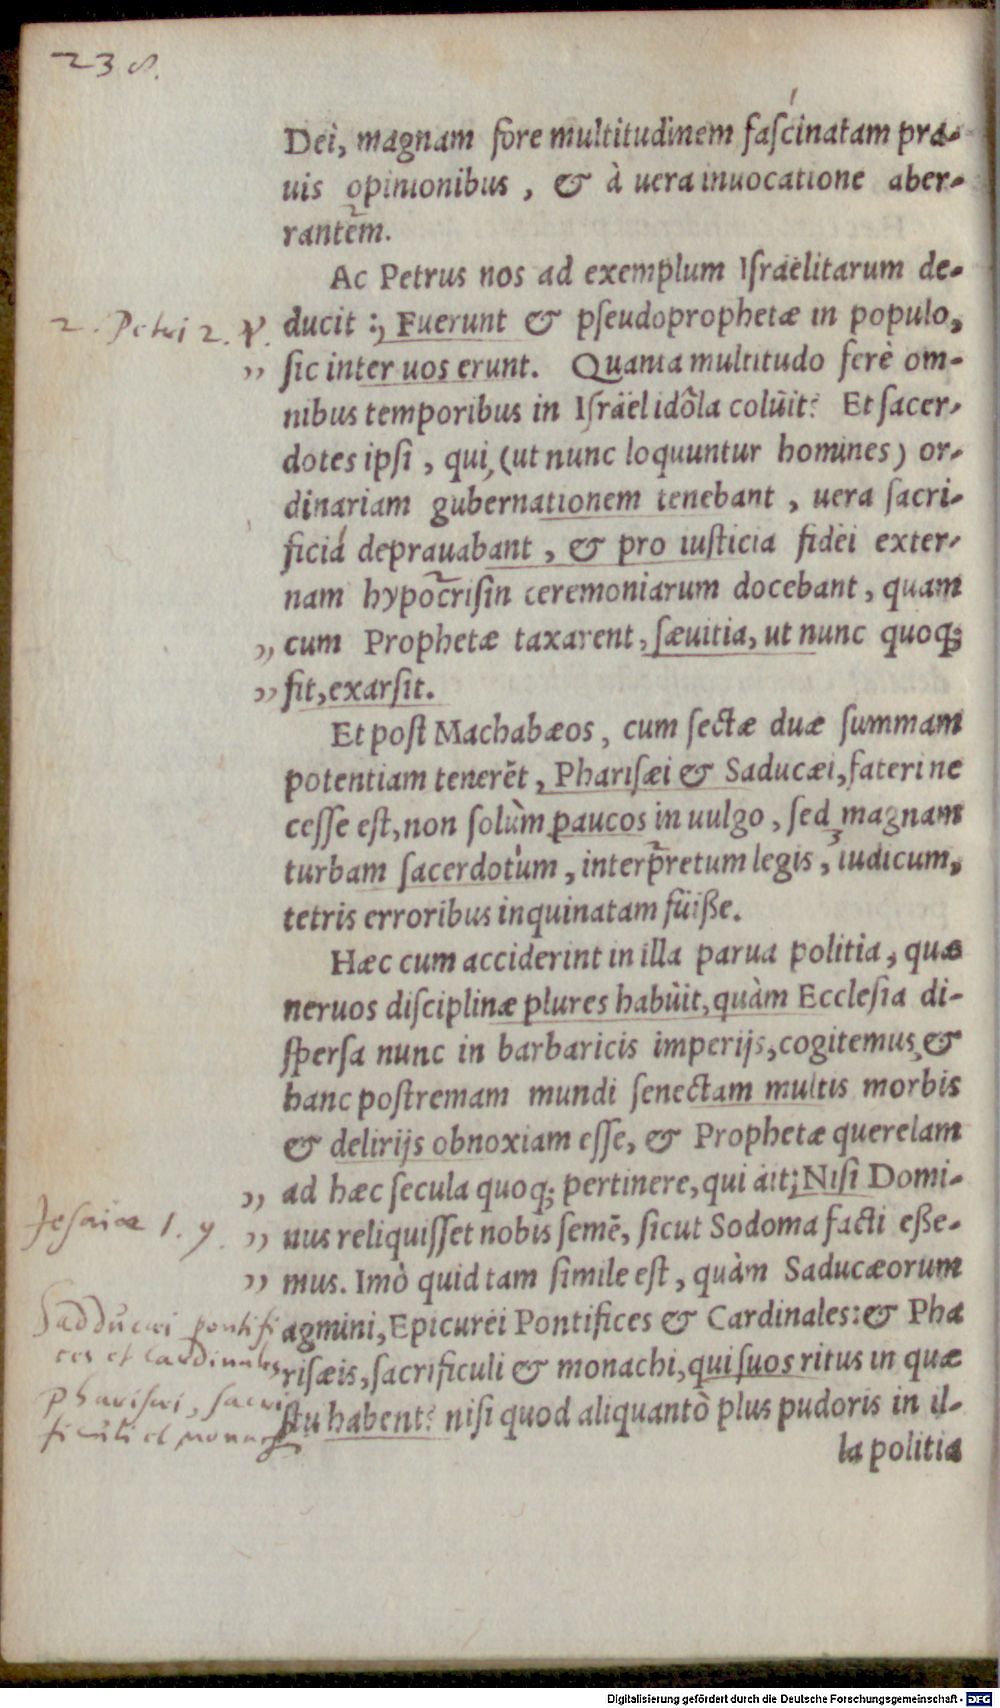 238.
Dei, magnam fore multitudinem faſcinatam pra-
uis opinionibus, & à uera inuocatione aber-
rantem.
Ac Petrus nos ad exemplum Iſraëlitarum de-
2. Petri 2. ducit:, Fuerunt & pſeudoprophetæ in populo,
” ſic inter uos erunt. Quanta multitudo ferè om-
nibus temporibus in Iſraël idôla coluit? Et ſacer-
dotes ipſi, qui, (ut nunc loquuntur homines) or-
dinariam gubernationem tenebant, uera ſacri-
ficia deprauabant, & pro iuſticia fidei exter-
nam hypocriſin ceremoniarum docebant, quam
” cum Prophetæ taxarent, ſæuitia, ut nunc quoq;
” fit, exarſit.
Et poſt Machabæos, cum ſectæ duæ ſummam
potentiam tenerēt, Phariſæi & Saducæi, fateri ne
ceſſe eſt, non ſolùm paucos in uulgo, ſed magnam
turbam ſacerdotum, interpretum legis, iudicum,
tetris erroribus inquinatam fuiße.
Hæc cum acciderint in illa parua politia, quæ
neruos diſciplinæ plures habuit, quàm Eccleſia di-
ſperſa nunc in barbaricis imperijs, cogitemus, &
hanc poſtremam mundi ſenectam multis morbis
& delirijs obnoxiam eſſe, & Prophetæ querelam
” ad hæc ſecula quoq; pertinere, qui ait; Niſi Domi-
Jesaiæ 1. 9. ” nus reliquiſſet nobis ſemē, ſicut Sodoma facti eße-
” mus. Imò quid tam ſimile eſt, quàm Saducæorum
Sadducæi pontifi agmini, Epicurei Pontifices & Cardinales: & Pha
ces et Cardinales riſæis, ſacrificuli & monachi, qui ſuos ritus in quæ
pharisæi, sacri ſtu habent? niſi quod aliquantò plus pudoris in il-
ficuli et monachi
la politia
Digitalisierung gefördert durch die Deutsche Forschungsgemeinschaft - DFG